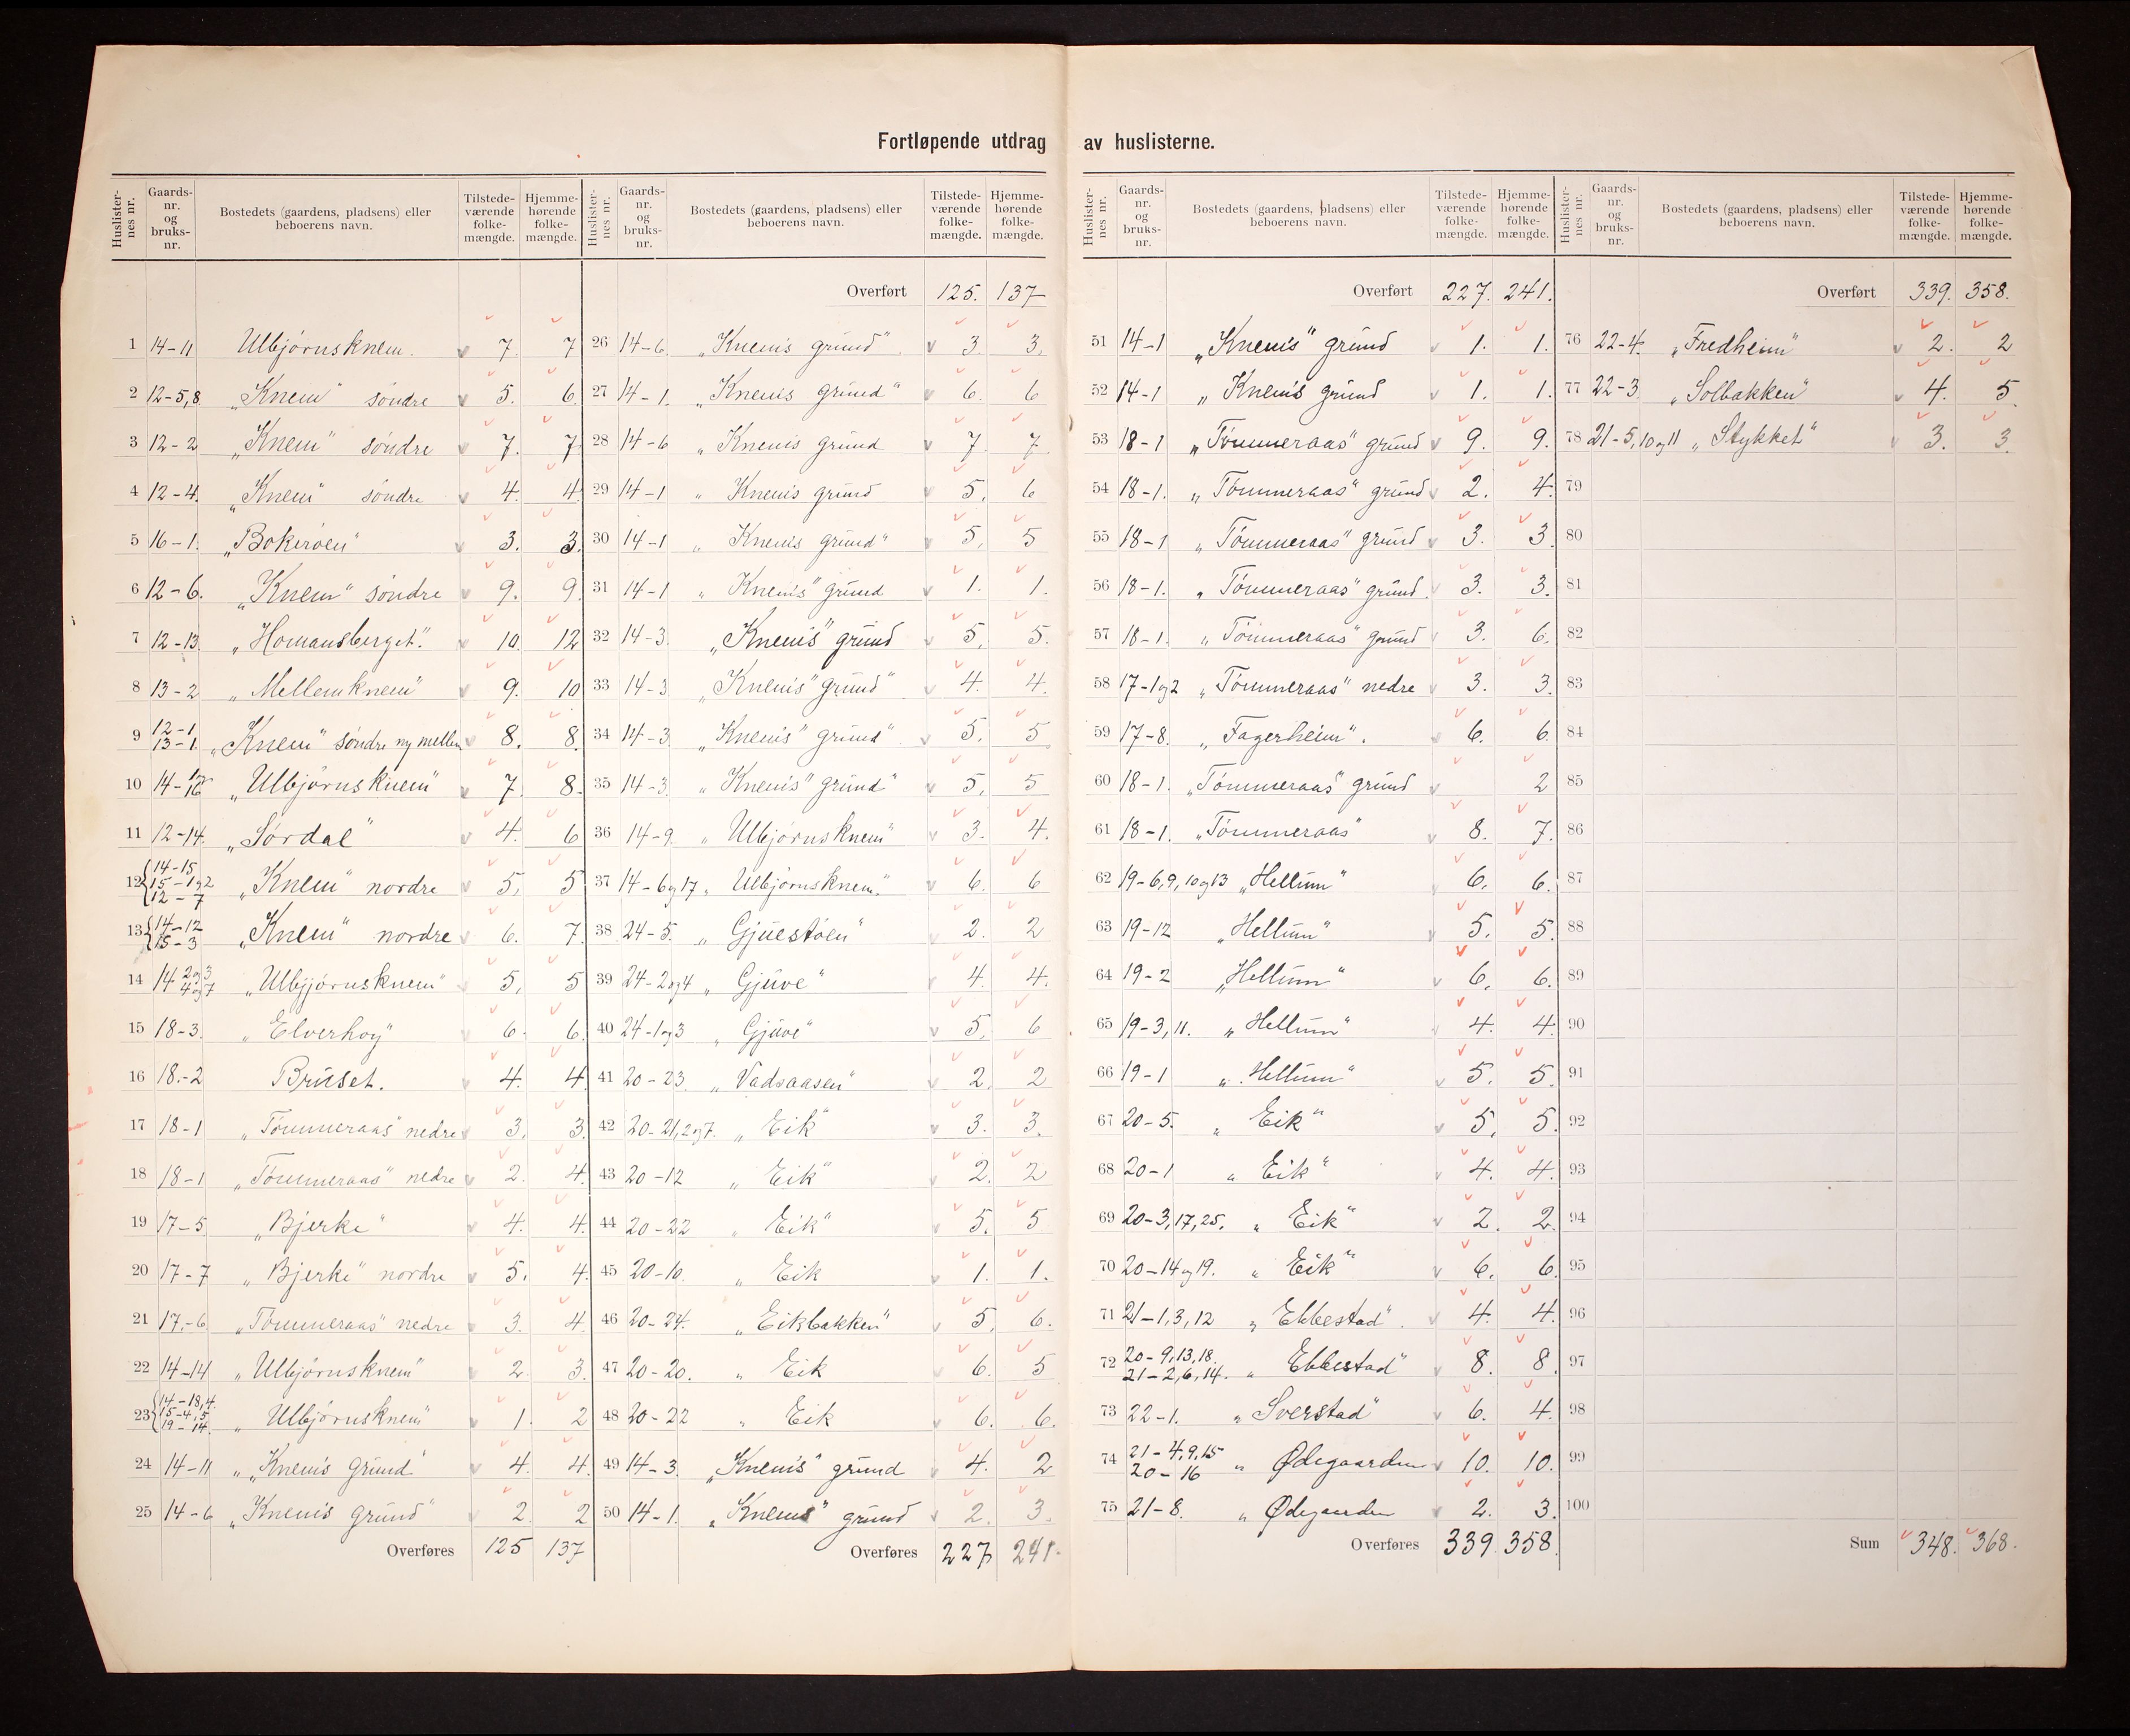 Fortløpende utdrag av huslisterne.
Huslisternes nr. Gaardsnr. og bruksnr. Bostedets (gaardens, pladsens) eller beboerens navn. Tilstedeværende folkemængde. Hjemmehørende folkemængde.
1 14-11 Ulbjørnsknem. 7. 7
2 12-5,8 „Knem" söndre 5. 6
3 12-2 „Knem" söndre 7. 7
4 12-4. „Knem" söndre 4. 4
5 16-1. „Bokeröen" 3. 3.
6 12-6. „Knem" söndre 9. 9
7 12-13. „Homansberget". 10. 12
8 13-2 „Mellemknem" 9. 10
9 12-1 13-1. „Knem" söndre ny mellem 8. 8
10 14- 16 „Ulbjørnsknem" 7. 8.
11 12-14. „Sördal" 4. 6
12 14-15 15-1og2 12-7 „Knem" nordre 5. 5
13 14-12 15-3 „Knem" nordre 6. 7
14 14 2og3 4og7 „Ulbjørnsknem" 5. 5
15 18-3. „Elverhoy" 6. 6
16 18.-2 Bruset. 4. 4
17 18-1 „Tömmeraas" nedre 3. 3.
18 18-1 „Tömmeraas" nedre 2. 4.
19 17-5. „Bjerke" 4. 4.
20 17-7 „Bjerke" nordre 5. 4.
21 17.-6 „Tömmeraas" nedre 3. 4
22 14-14 „Ulbjørnsknem" 2. 3.
23 14-18,4. 15-4,5 19-14. „Ulbjørnsknem" 1. 2
24 14-11 „„Knems Grund" 4. 4
25 14-6 „Knems grund" 2. 2
Overføres 125 137
Huslisternes nr. Gaardsnr. og bruksnr. Bostedets (gaardens, pladsens) eller beboerens navn. Tilstedeværende folkemængde. Hjemmehørende folkemængde.
Overført 125. 137
26 14-6 „Knems grund" 3. 3.
27 14-1. „Knems grund" 6. 6
28 14-6 „Knems grund 7. 7
29 14-1 „Knems grund 5. 6
30 14-1 „Knems grund" 5. 5
31 14-1 „Knems" grund 1. 1.
32 14-3. „Knems" grund 5. 5.
33 14-3. „Knems" grund" 4. 4.
34 14-3. „Knems" grund" 5. 5
35 14-3. „Knems" grund" 5. 5
36 14-9. „Ulbjørnsknem" 3. 4.
37 14-6og17 „Ulbjørnsknem." 6. 6
38 24-5. „Gjuestöen" 2. 2
39 24-2og4 „Gjuve" 4. 4.
40 24-1og3 „Gjuve" 5. 6
41 20-23. „Vadsaasen" 2. 2
42 20-21,2og7. „Eik" 3. 3.
43 20-12 „Eik" 2. 2
44 20-22 „Eik" 5. 5
45 20-10. „Eik 1. 1.
46 20-24. „Eikbakken" 5. 6.
47 20-20. „Eik 6. 5
48 20-22 „Eik 6. 6.
49 14-3. „Knems" grund 4. 2
50 14-1. „Knems" grund 2. 3.
Overføres 227 241.
Huslisternes nr. Gaardsnr. og bruksnr. Bostedets (gaardens, pladsens) eller beboerens navn. Tilstedeværende folkemængde. Hjemmehørende folkemængde.
Overført 227. 241.
51 14-1 „Knems" grund 1. 1.
52 14-1 „Knems grund 1. 1.
53 18-1 „Tömmeraas" grund 9. 9.
54 18-1. „Tömmeraas" grund 2. 4.
55 18-1 „Tömmeraas" grund 3. 3.
56 18-1. „Tömmeraas" grund. 3. 3.
57 18-1. „Tömmeraas" grund 3. 6.
58 17-1og2 „Tömmeraas" nedre 3. 3.
59 17-8. „Fagerheim". 6. 6.
60 18-1. „Tömmeraas" grund 2
61 18-1. „Tömmeraas" 8. 7.
62 19-6,9,10og13 „Hellum" 6. 6.
63 19-12 „Hellum" 5. 5.
64 19-2 „Hellum" 6. 6.
65 19-3,11. „Hellum" 4. 4.
66 19-1 „Hellum" 5. 5.
67 20-5. „Eik" 5. 5.
68 20-1 „Eik" 4. 4.
69 20-3,17,25. „Eik" 2. 2.
70 20-14og19. „Eik" 6. 6.
71 21-1,3,12 „Ebbestad". 4. 4.
72 20-9,13,18. 21-2,6,14. „Ebbestad" 8. 8.
73 22-1. „Sverstad" 6. 4.
74 21-4,9,15 20-16 „Ødegaarden 10. 10.
75 21-8. „Ødegaarden 2. 3.
Overføres 339. 358.
Huslisternes nr. Gaardsnr. og bruksnr. Bostedets (gaardens, pladsens) eller beboerens navn. Tilstedeværende folkemængde. Hjemmehørende folkemængde.
Overført 339. 358.
76 22-4. „Fredheim" 2. 2
77 22-3. „Solbakken" 4. 5
78 21-5,10og11 „Stykket" 3. 3.
79
80
81
82
83
84
85
86
87
88
89
90
91
92
93
94
95
96
97
98
99
100
Sum 348. 368.